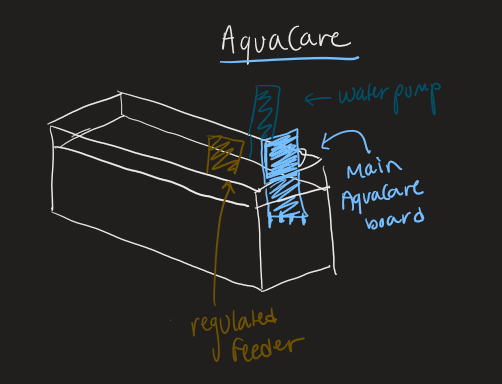 AquaCare
water pump
Main
AquaCare
board
regulated
feeder